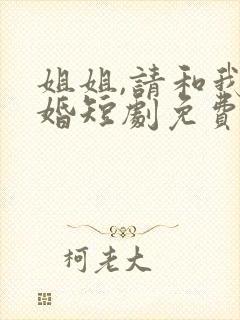 姐姐,請和我
婚短劇免費
柯老大